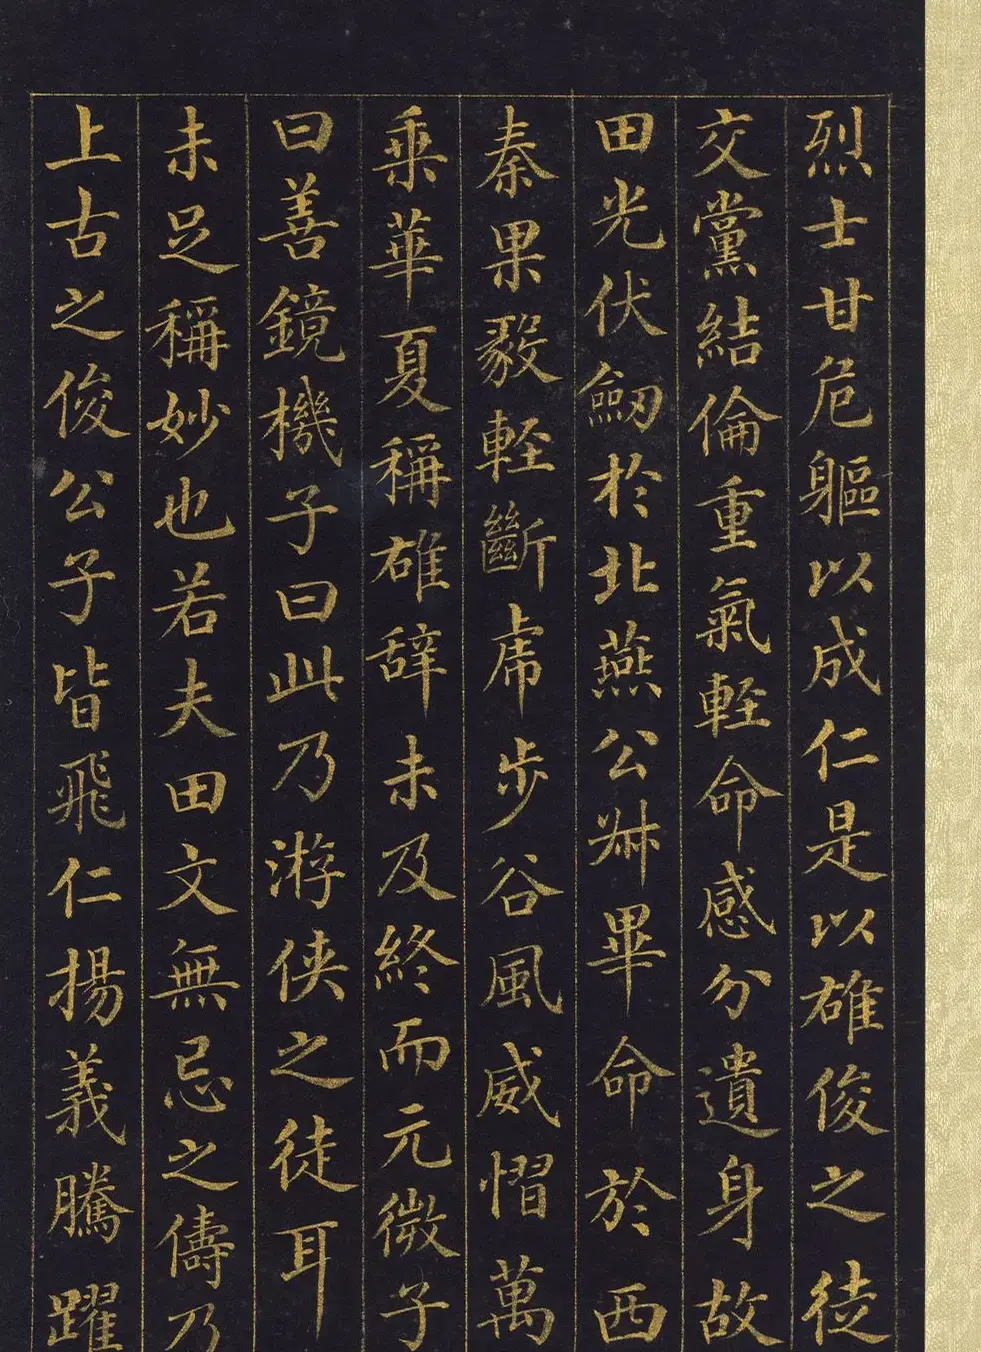 烈士甘危軀以成仁是以雄俊之徒
交黨結倫重氣輕命感分遺身故
田光伏劒於北燕公叔畢命於西
秦果毅輕斷虎步谷風威慴萬
乘華夏稱雄辞未及終而元微子
曰善鏡機子曰此乃游俠之徒耳
未足稱妙也若夫田文無忌之儔乃
上古之俊公子皆飛仁揚義騰躍